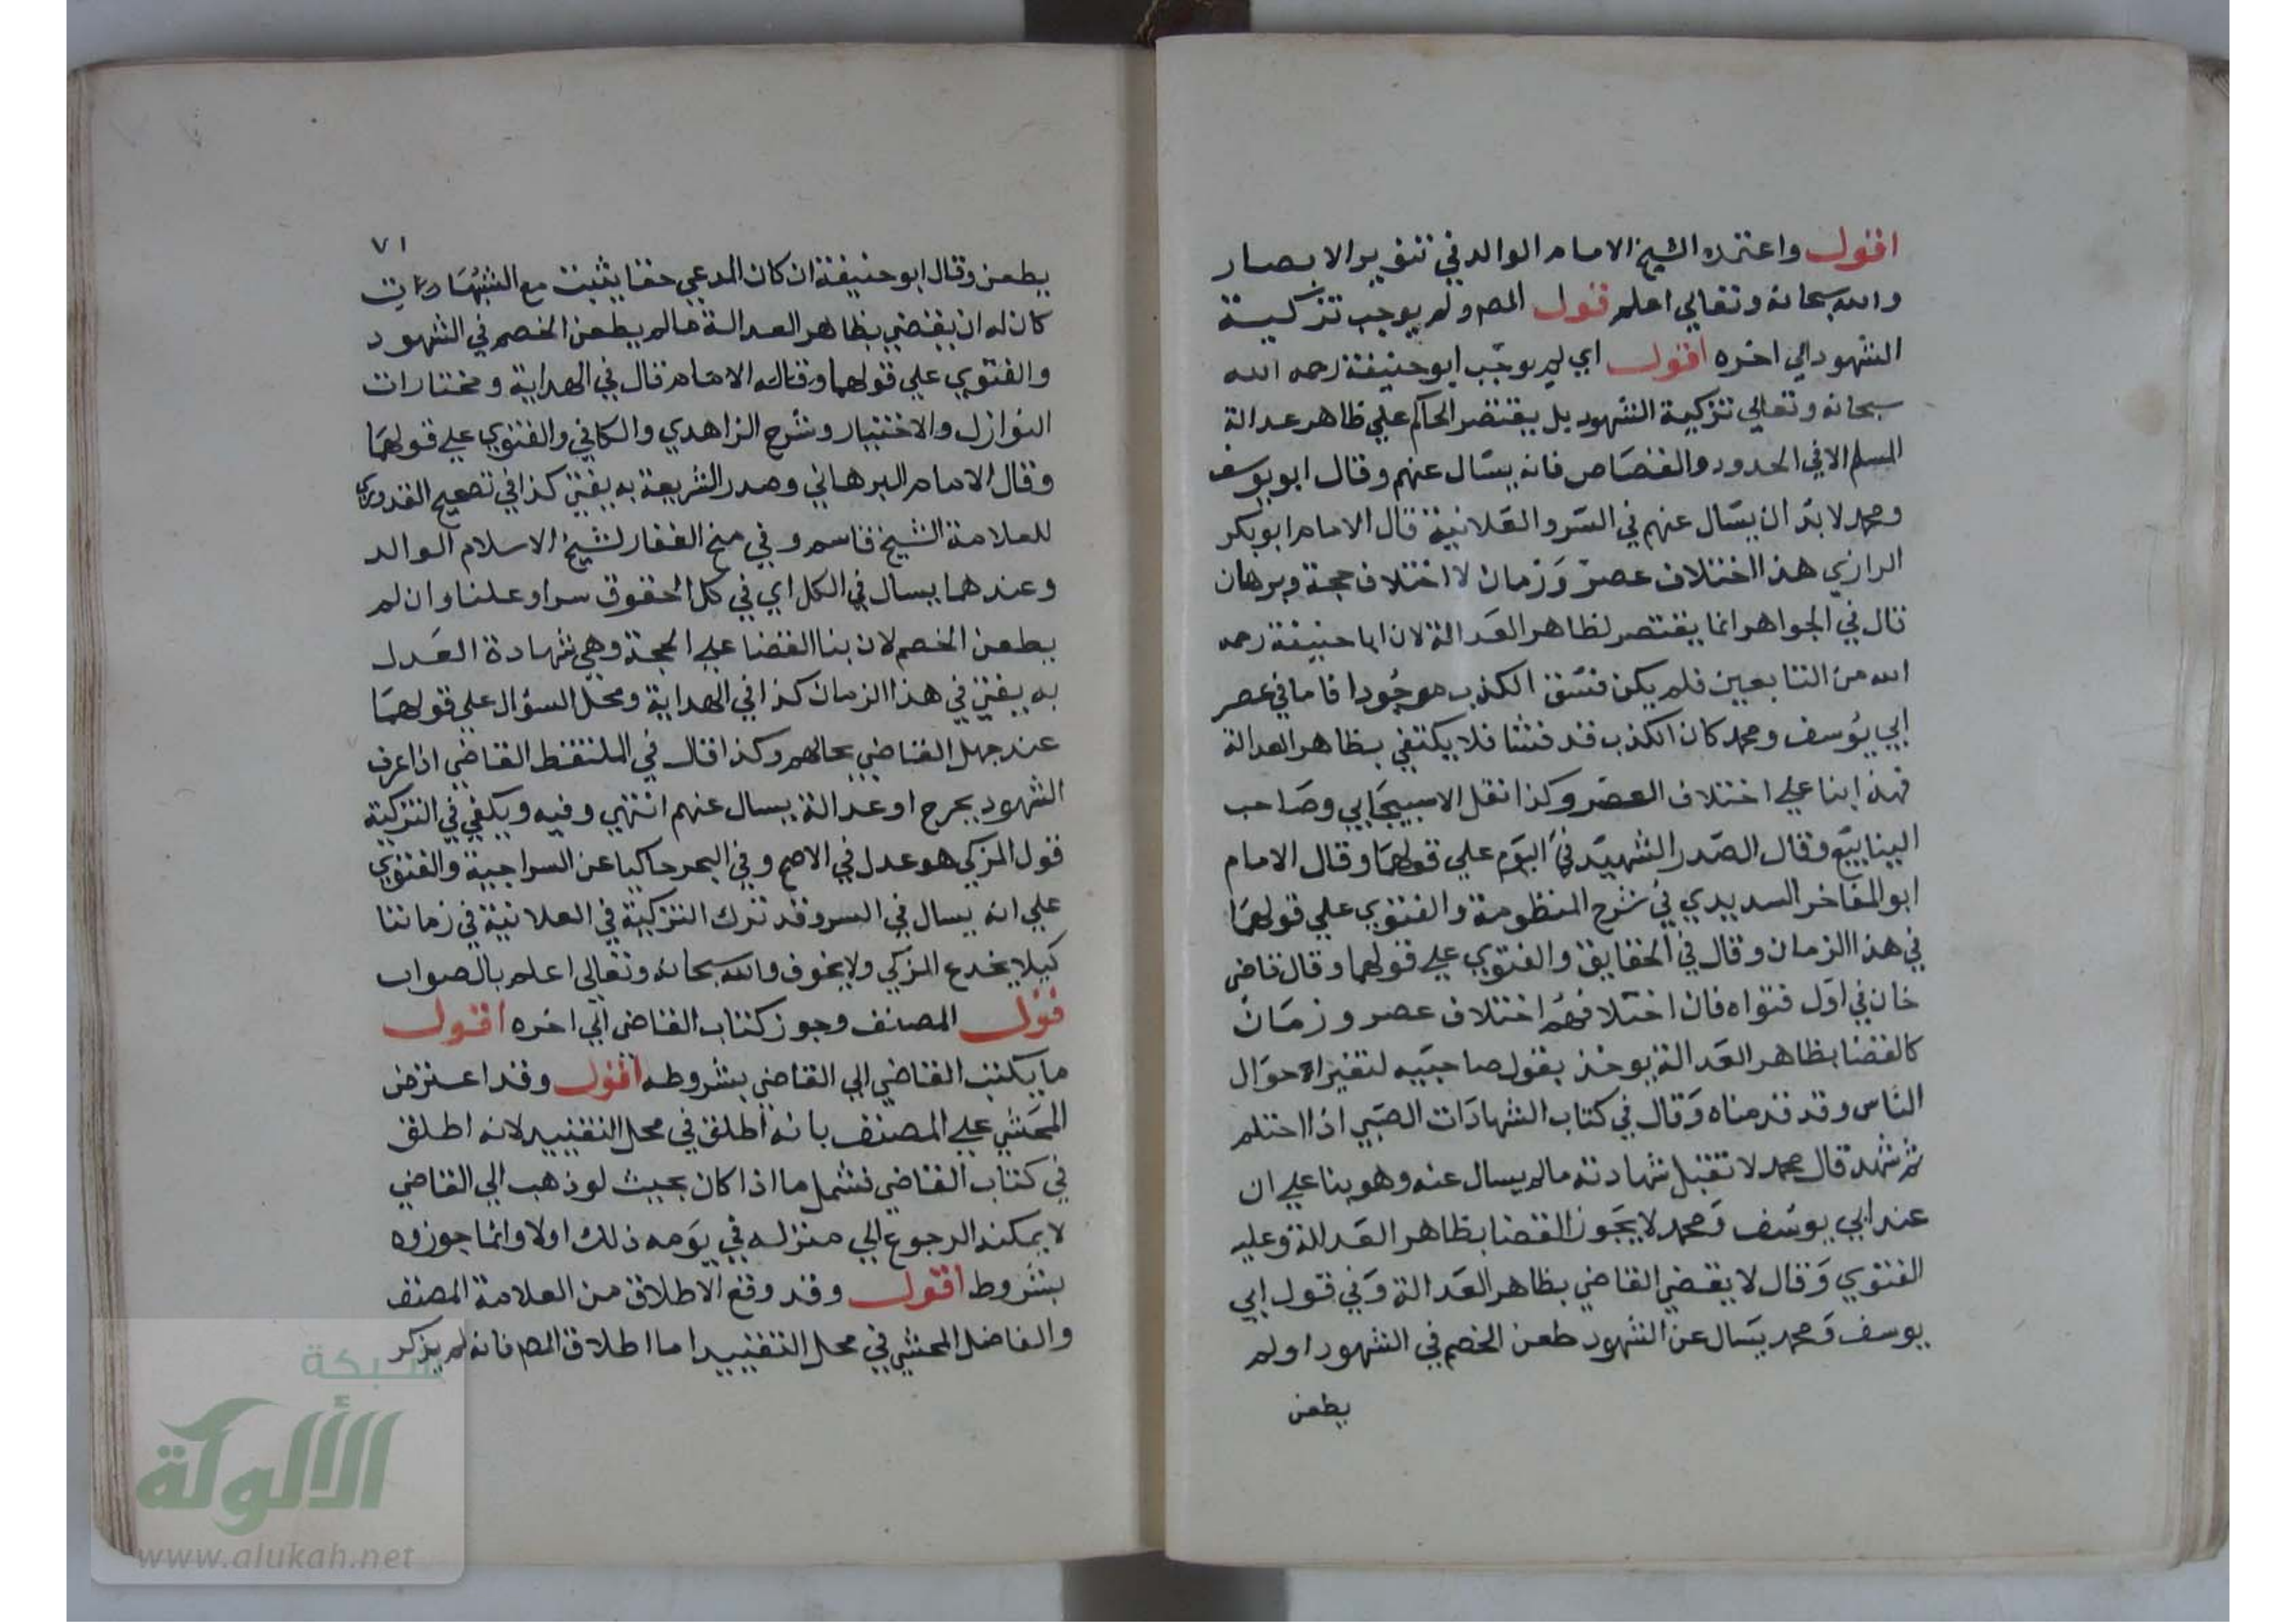 اقول واعتمده الشيخ الامام الوالد في تنوير الابصار
والله سبحانه وتعالي اعلم قول المص ولم يوجب تزكية
الشهود الي اخره اقول اي لم يوجب ابو حنيفة رحمه الله
سبحانه وتعالي تزكية الشهود بل يقتصر الحاكم علي ظاهر عدالة
المسلم الا في الحدود والقصاص فانه يسال عنهم وقال ابو يوسف
ومحمد لا بد ان يسال عنهم في السر والعلانية قال الامام ابو بكر
الرازي هذا اختلاف عصر وزمان لا اختلاف حجة وبرهان
قال في الجواهر انما يقتصر لظاهر العدالة لان ابا حنيفة رحمه
الله من التابعين فلم يكن فسق الكذب موجودا فاما في عصر
ابي يوسف ومحمد كان الكذب قد فشا فلا يكتفي بظاهر العدالة
فهذا بنا علي اختلاف العصر وكذا نقل الاسبيجابي وصاحب
الينابيع وقال الصدر الشهيد في اليوم علي قولهما وقال الامام
ابو المفاخر السديدي في شرح المنظومة والفتوي علي قولهما
في هذا الزمان وقال في الحقايق والفتوي علي قولهما وقال قاضي
خان في اول فتواه فان اختلافهم اختلاف عصر وزمان
كالقضا بظاهر العدالة يوخذ بقول صاحبيه لتغير احوال
الناس وقد قدمناه وقال في كتاب الشهادات الصبي اذا احتلم
ثم شهد قال محمد لا تقبل شهادته ما لم يسال عنه وهو بنا علي ان
عند ابي يوسف ومحمد لا يجوز القضا بظاهر العدالة وعليه
الفتوي وقال لا يقضي القاضي بظاهر العدالة وفي قول ابي
يوسف ومحمد يسال عن الشهود طعن الخصم في الشهود او لم
يطعن
٧١
يطعن وقال ابو حنيفة ان كان المدعي حقا يثبت مع الشبهات
كان له ان يقضي بظاهر العدالة ما لم يطعن الخصم في الشهود
والفتوي علي قولهما وقاله الامام قال في الهداية ومختارات
النوازل والاختيار وشرح الزاهدي والكافي والفتوي علي قولهما
وقال الامام البرهاني وصدر الشريعة به يفتي كذا في تصحيح القدوري
للعلامة الشيخ قاسم وفي منح الغفار لشيخ الاسلام الوالد
وعندهما يسال في الكل اي في كل الحقوق سرا وعلنا وان لم
يطعن الخصم لان بنا القضا علي الحجة وهي شهادة العدل
به يفتي في هذا الزمان كذا في الهداية ومحل السؤال علي قولهما
عند جهل القاضي بحالهم وكذا قال في الملتقط القاضي اذا عرف
الشهود بجرح او عدالة يسال عنهم انتهي وفيه ويكفي في التزكية
قول المزكي هو عدل في الاصح وفي البحر حاكيا عن السراجية والفتوي
علي انه يسال في السر وقد ترك التزكية في العلانية في زماننا
كيلا يخدع المزكي ولا يخوف والله سبحانه وتعالي اعلم بالصواب
قول المصنف وجوز كتاب القاضي الي اخره اقول
ما يكتب القاضي الي القاضي بشروطه اقول وقد اعترض
المحشي علي المصنف بانه اطلق في محل التقييد لانه اطلق
في كتاب القاضي فشمل ما اذا كان بحيث لو ذهب الي القاضي
لا يمكنه الرجوع الي منزله في يومه ذلك اولا وانما جوزوه
بشروط اقول وقد وقع الاطلاق من العلامة المصنف
والفاضل المحشي في محل التقييد اما اطلاق المص فانه لم يذكر
شبكة
الألوكة
www.alukah.net